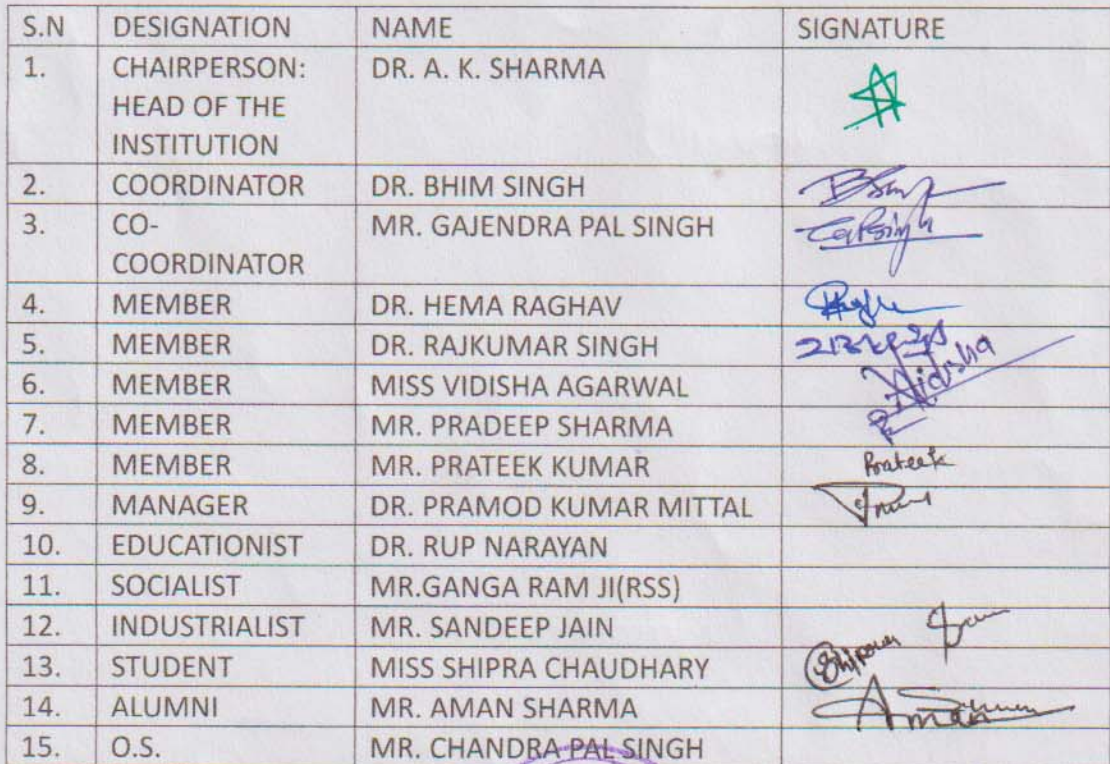 S.N DESIGNATION NAME SIGNATURE
1. CHAIRPERSON: DR. A. K. SHARMA
HEAD OF THE
INSTITUTION
2. COORDINATOR DR. BHIM SINGH
3. CO- MR. GAJENDRA PAL SINGH
COORDINATOR
4. MEMBER DR. HEMA RAGHAV
5. MEMBER DR. RAJKUMAR SINGH
6. MEMBER MISS VIDISHA AGARWAL Vidisha
7. MEMBER MR. PRADEEP SHARMA
8. MEMBER MR. PRATEEK KUMAR Prateek
9. MANAGER DR. PRAMOD KUMAR MITTAL
10. EDUCATIONIST DR. RUP NARAYAN
11. SOCIALIST MR.GANGA RAM JI(RSS)
12. INDUSTRIALIST MR. SANDEEP JAIN
13. STUDENT MISS SHIPRA CHAUDHARY
14. ALUMNI MR. AMAN SHARMA Aman
15. O.S. MR. CHANDRA PAL SINGH